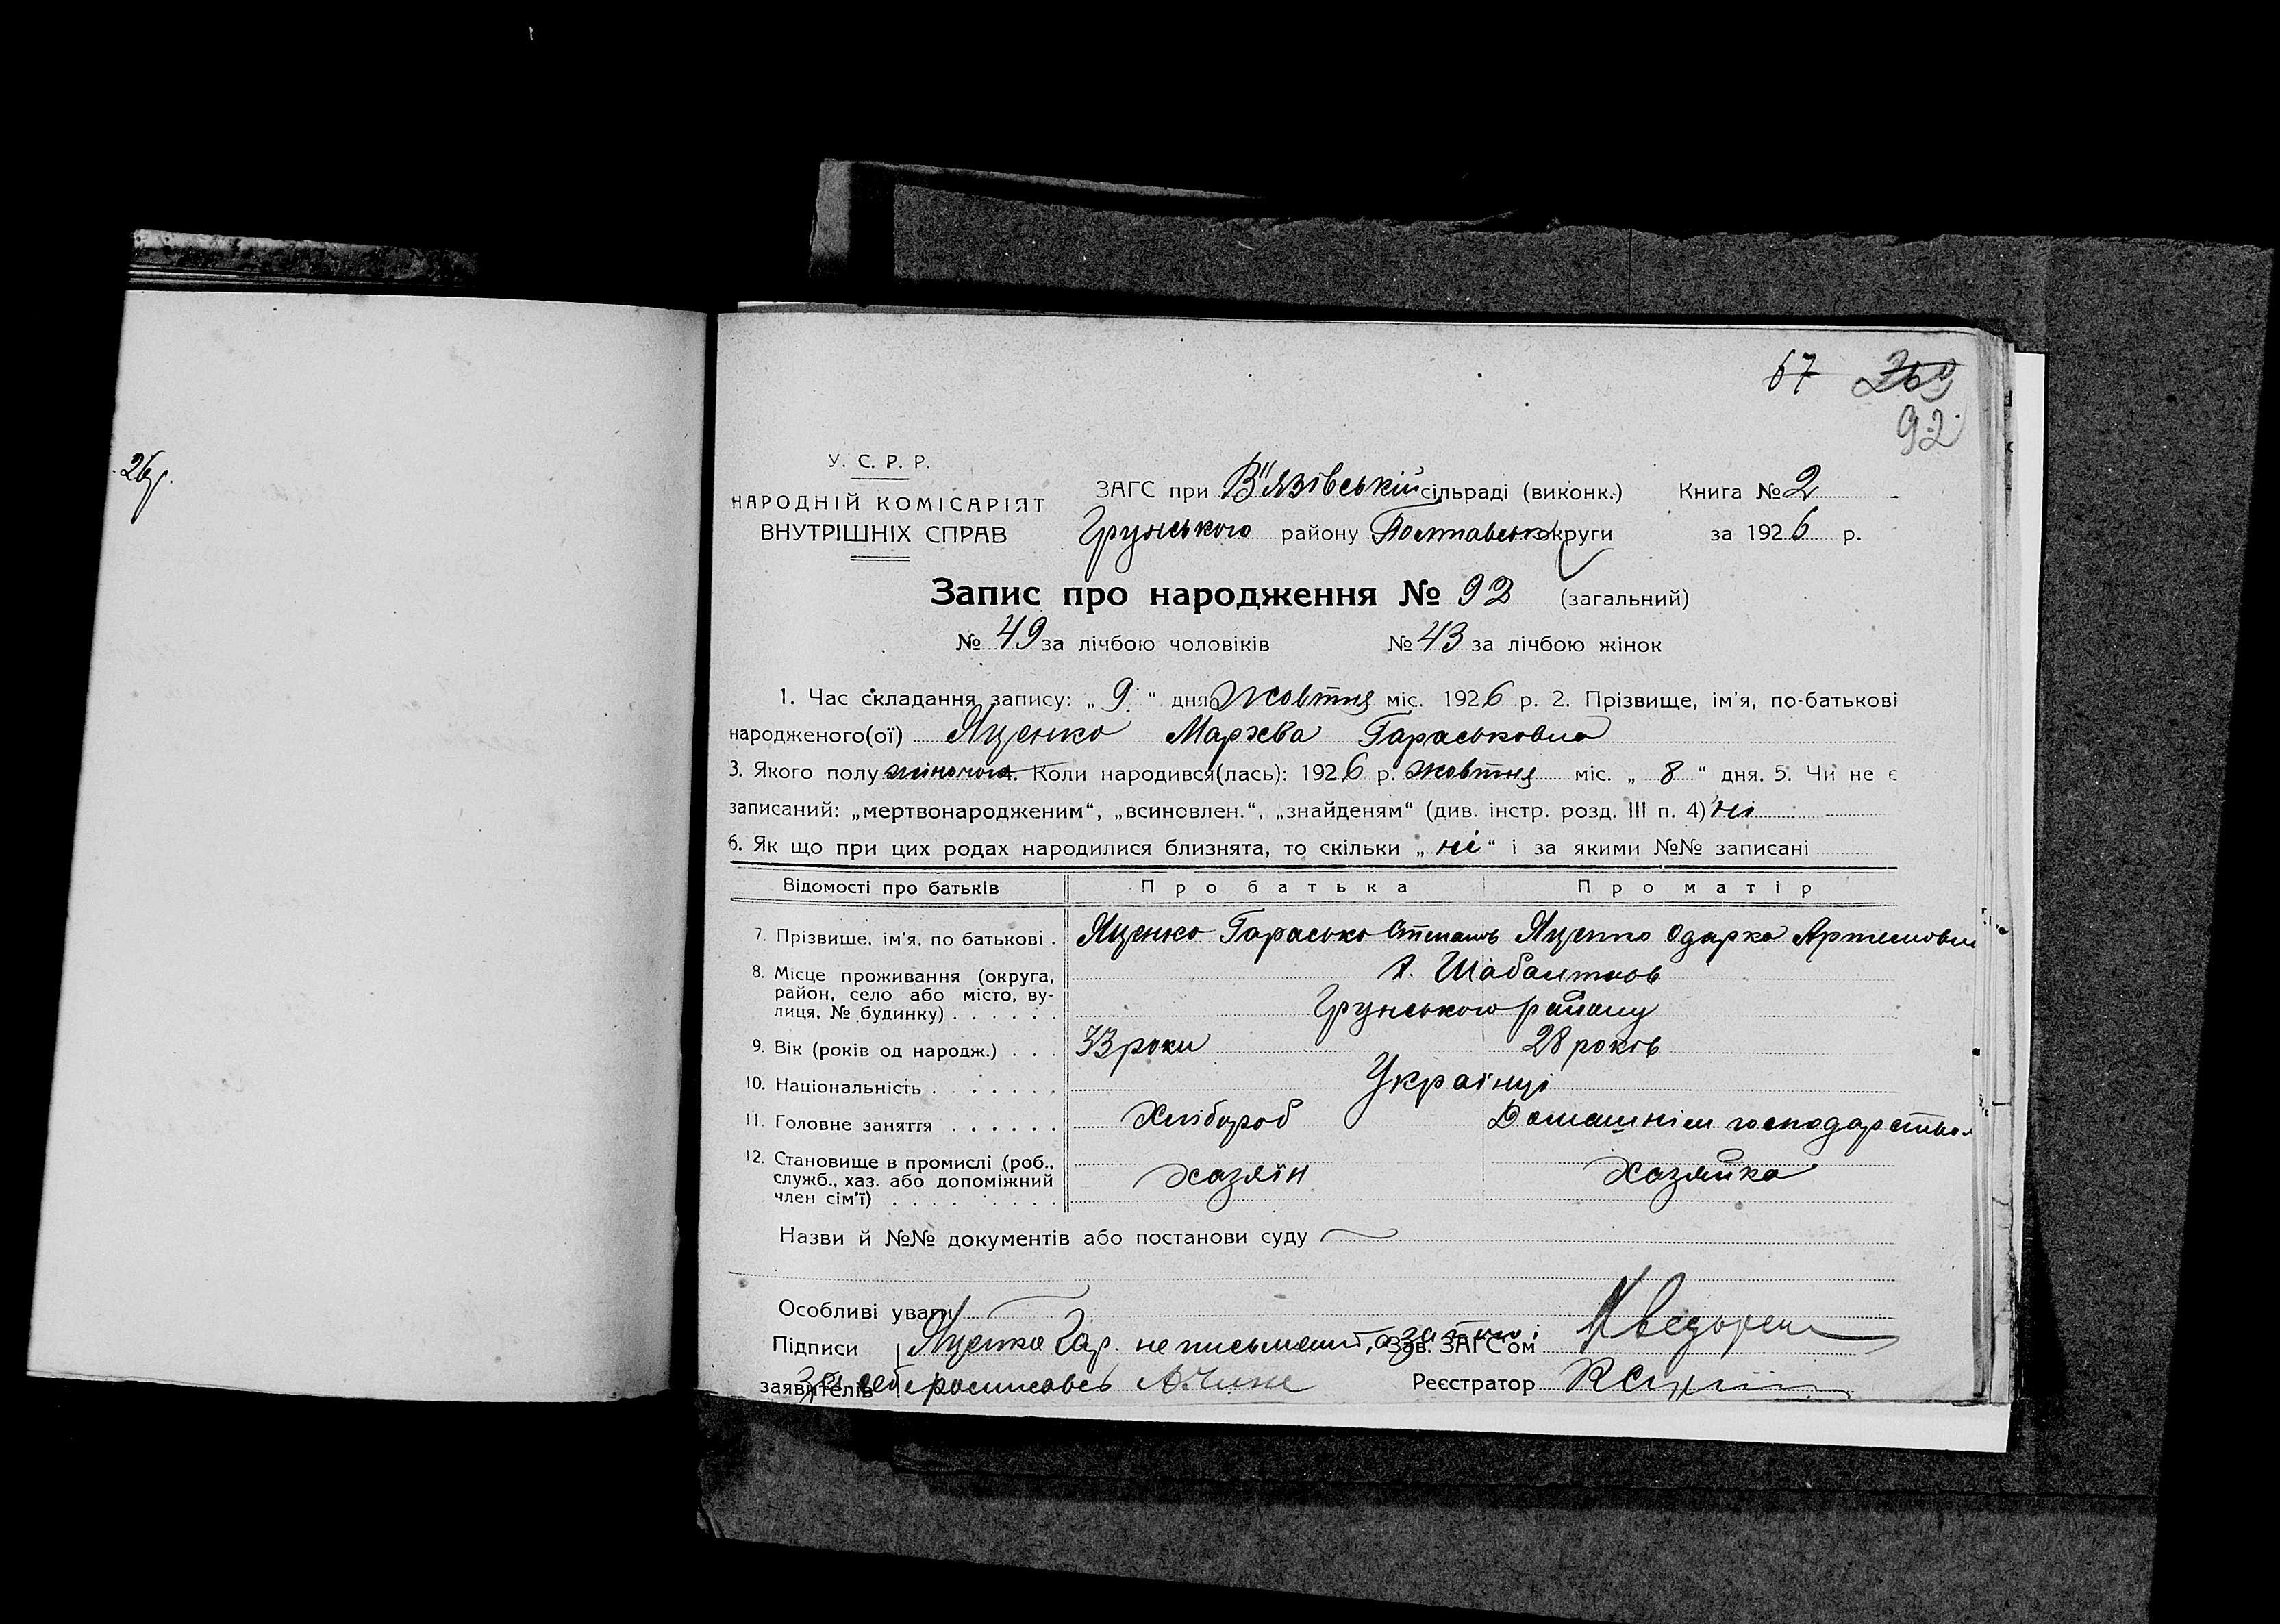 67 269
92
26 р.
У. С. Р. Р.
НАРОДНІЙ КОМІСАРІЯТ
ВНУТРІШНІХ СПРАВ
ЗАГС при В"язівській сільраді (виконк.) Книга № 2
Грунського району Полтавськ округи за 1926 р.
Запис про народження № 92 (загальний)
№ 49 за лічбою чоловіків № 43 за лічбою жінок
1. Час складання запису: „ 9 “ дня Жовтня міс. 1926 р. 2. Прізвище, ім'я, по-батькові
народженого(ої) Яценко Мархва Гараськовна
3. Якого полу жіночого. Коли народився(лась): 1926 р. жовтня міс. „ 8 “ дня. 5. Чи не є
записаний: „мертвонародженим“, „всиновлен.“, „знайденям“ (див. інстр. розд. III п. 4) ні
6. Як що при цих родах народилися близнята, то скільки „ ні “ і за якими №№ записані
Відомості про батьків Про батька Про матір
7. Прізвище, ім'я, по батькові . Яценко Гарасько Степанов Яценко Одарка Артемовн
8. Місце проживання (округа, район, село або місто, вулиця, № будинку) . . . . . .
х. Шабалтаєв
Грунського району
9. Вік (років од народж.) . . . 33 роки 28 років
10. Національність . . . . . . . Українці
11. Головне заняття . . . . . . Хлібороб Домашнім господарством
12. Становище в промислі (роб., служб., хаз. або допоміжний член сім'ї) . . . . . . . . . Хазяїн Хазяйка
Назви й №№ документів або постанови суду
Особливі уваги
Підписи Яценко Гар. не письмений, а за Зав. ЗАГС'ом
заявителів себе росписавсь Реєстратор